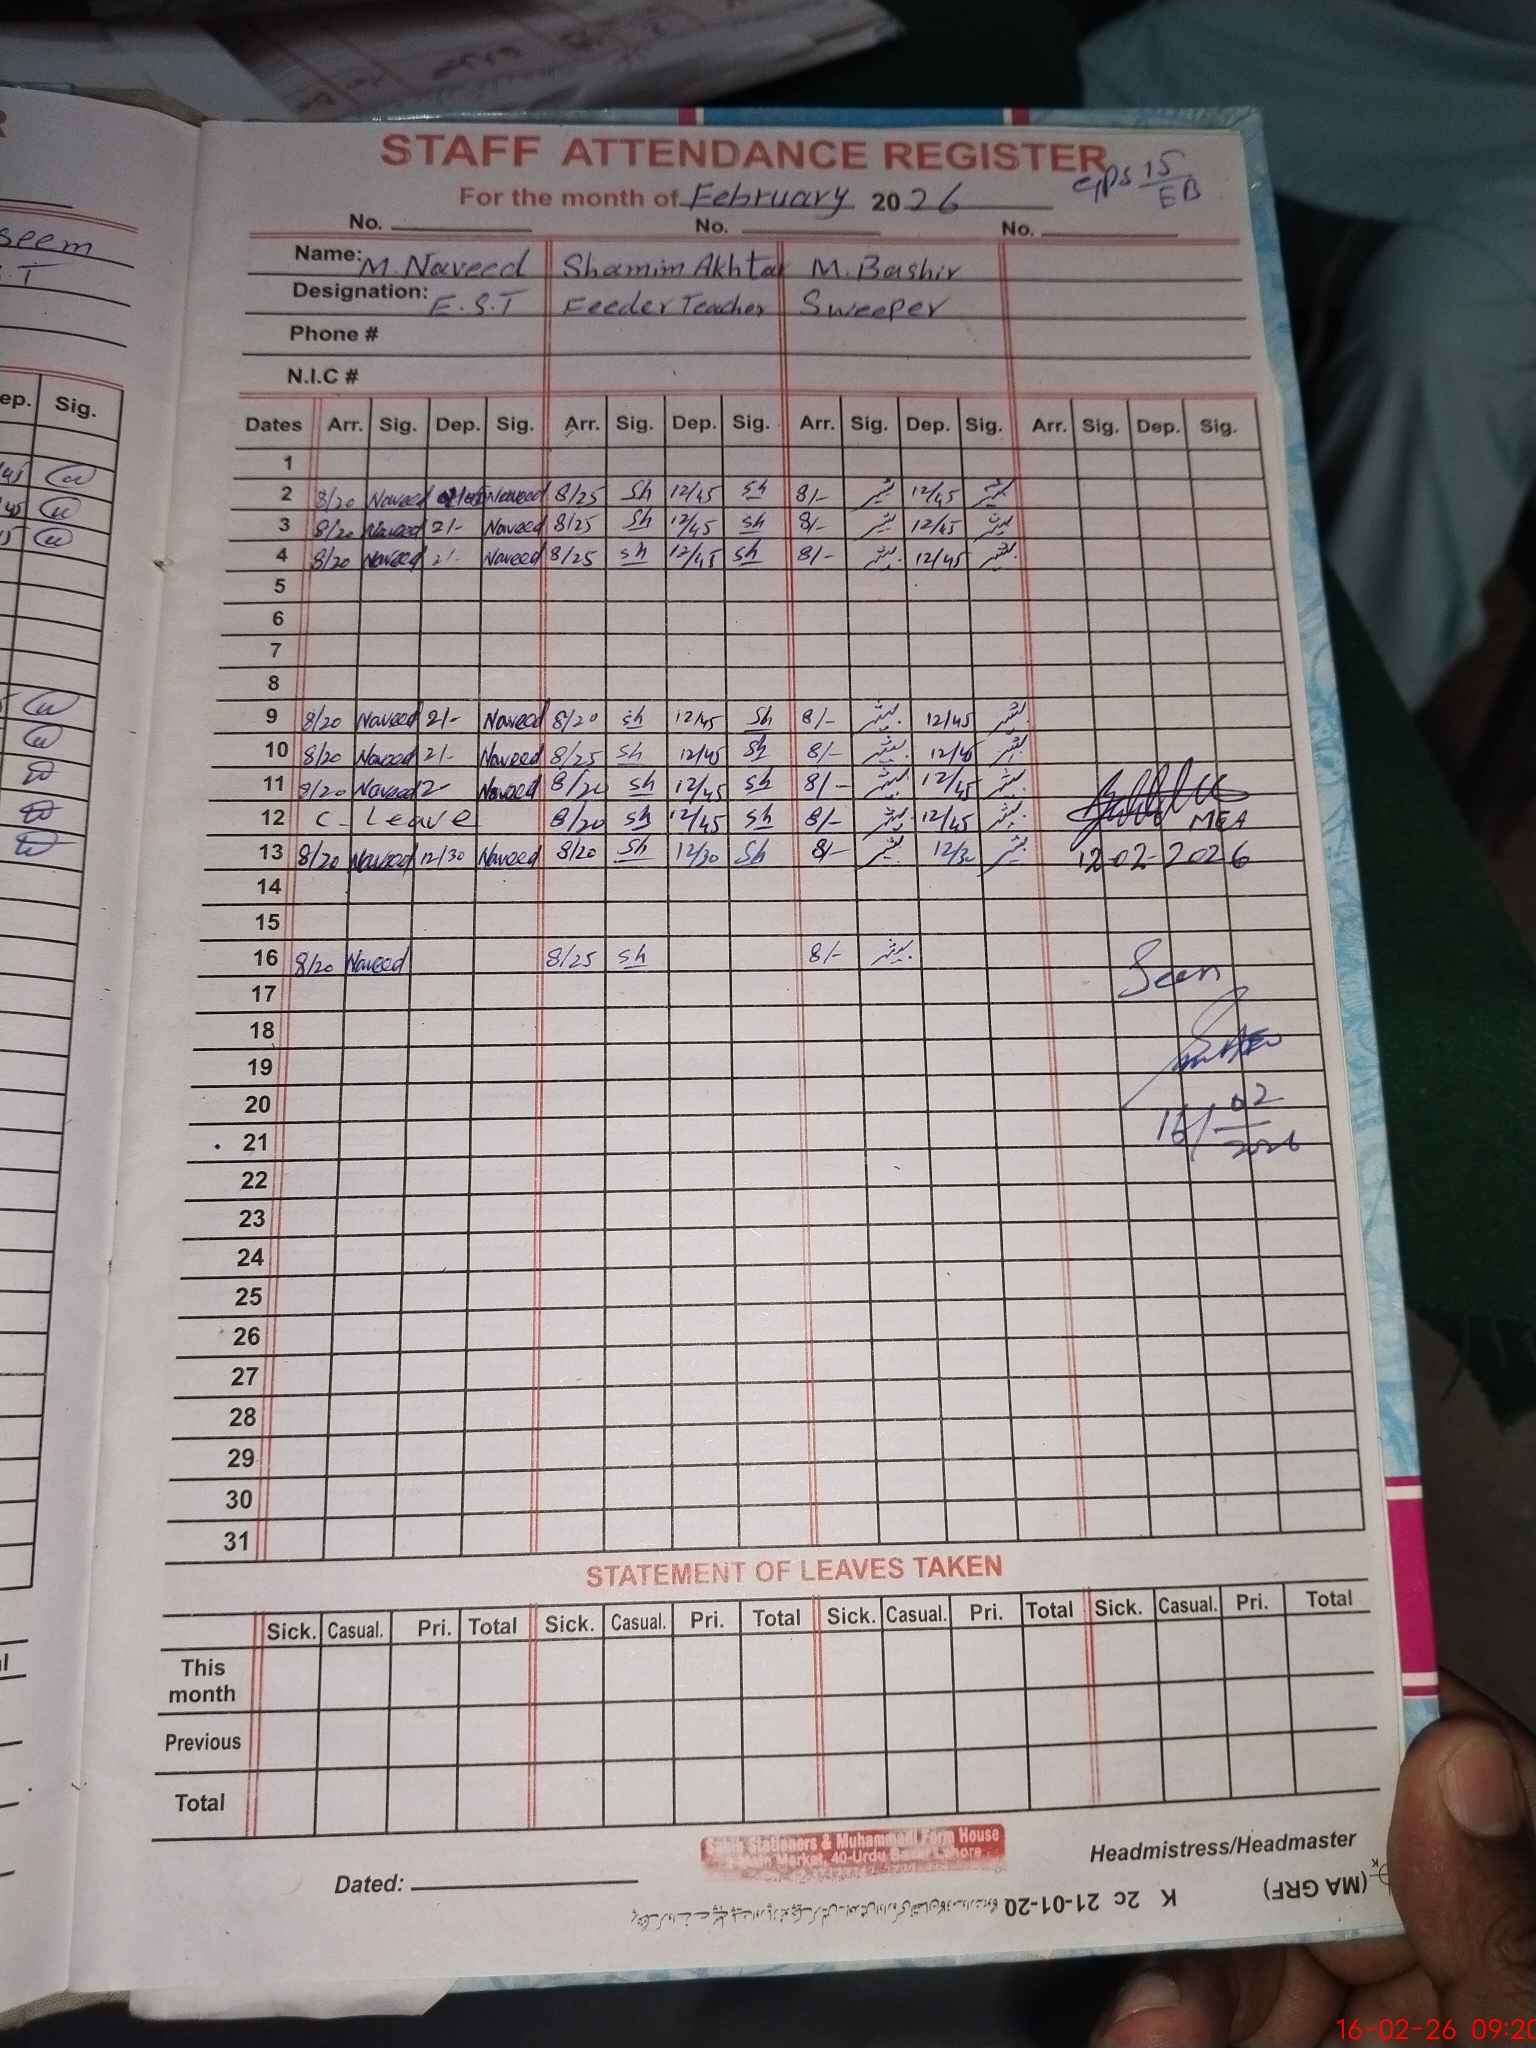 STAFF ATTENDANCE REGISTER
For the month of February 2026 GPS 15/EB
No. No. No.
Name: M. Naveed Shamim Akhtar M. Bashir
Designation: E.S.T Feeder Teacher Sweeper
Phone #
N.I.C #
Dates Arr. Sig. Dep. Sig. Arr. Sig. Dep. Sig. Arr. Sig. Dep. Sig. Arr. Sig. Dep. Sig.
1
2 8/20 Naveed Naveed 8/25 Sh 12/45 Sh 8/- بشیر 12/45 بشیر
3 8/20 Naveed 2/- Naveed 8/25 Sh 12/45 Sh 8/- بشیر 12/45 بشیر
4 8/20 Naveed 2/- Naveed 8/25 Sh 12/45 Sh 8/- بشیر 12/45 بشیر
5
6
7
8
9 8/20 Naveed 2/- Naveed 8/20 Sh 12/45 Sh 8/- بشیر 12/45 بشیر
10 8/20 Naveed 2/- Naveed 8/25 Sh 12/45 Sh 8/- بشیر 12/45 بشیر
11 8/20 Naveed 2- Naveed 8/20 Sh 12/45 Sh 8/- بشیر 12/45 بشیر
12 C- Leave 8/20 Sh 12/45 Sh 8/- بشیر 12/45 بشیر MEA
13 8/20 Naveed 12/30 Naveed 8/20 Sh 12/30 Sh 8/- بشیر 12/30 بشیر 12-02-2026
14
15
16 8/20 Naveed 8/25 Sh 8/- بشیر
Seen
17
18
19
20
16/02/2026
21
22
23
24
25
26
27
28
29
30
31
STATEMENT OF LEAVES TAKEN
Sick. Casual. Pri. Total Sick. Casual. Pri. Total Sick. Casual. Pri. Total Sick. Casual. Pri. Total
This month
Previous
Total
Stationers & Muhammadi Form House
Market, 40-Urdu Bazar Lahore
Headmistress/Headmaster
Dated:
(MA GRF) K 2c 21-01-20
seem
.T
ep. Sig.
16-02-26 09:20